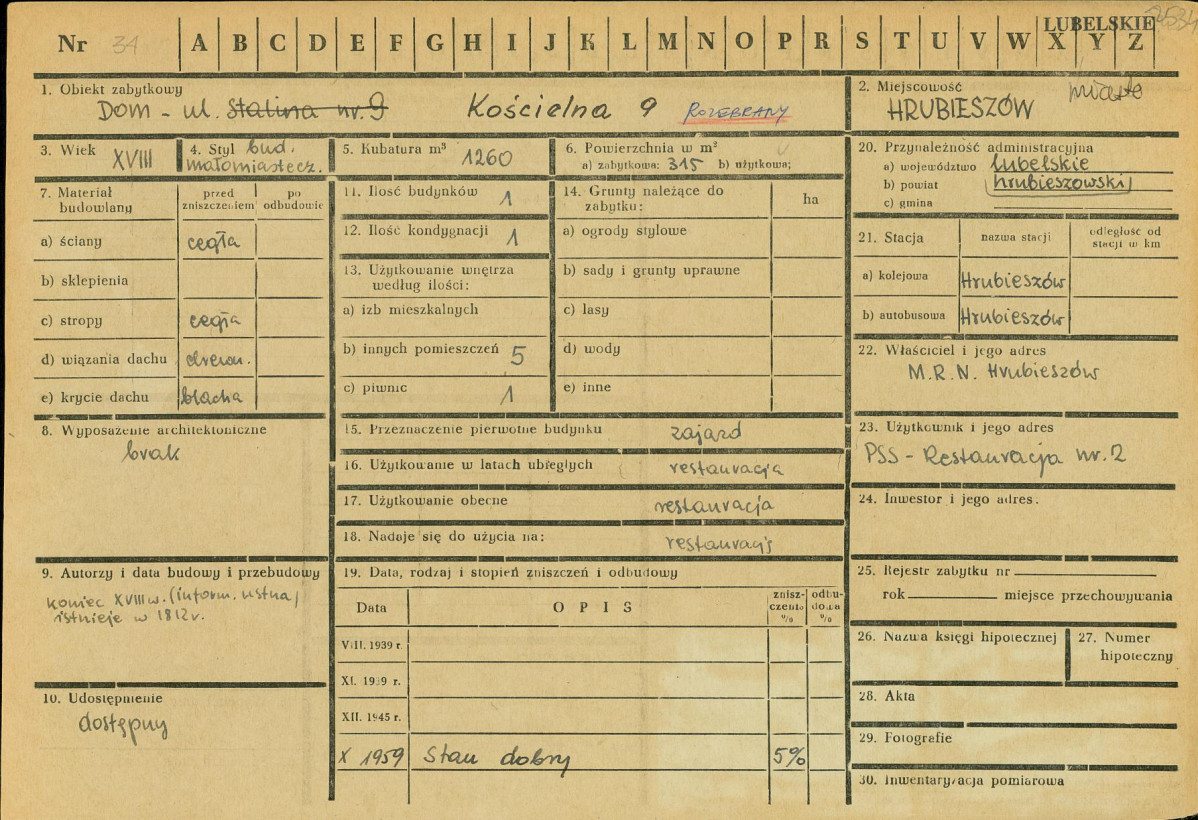 LUBELSKIE
Nr 34 A B C D E F G H I J K L M N O P R S T U V W X Y Z
1. Obiekt zabytkowy
Dom - ul. Stalina nr. 9 Kościelna 9 ROZEBRANY
2. Miejscowość miasto
HRUBIESZÓW
3. Wiek XVIII
4. Styl bud.
małomiastecz.
5. Kubatura m³ 1260
6. Powierzchnia w m²
a) zabytkowa: 315 b) użytkowa:
20. Przynależność administracyjna
a) województwo lubelskie
b) powiat hrubieszowski
c) gmina
7. Materiał budowlany
przed zniszczeniem
po odbudowie
a) ściany cegła
b) sklepienia
c) stropy cegła
d) wiązania dachu drewn.
e) krycie dachu blacha
8. Wyposażenie architektoniczne
brak
9. Autorzy i data budowy i przebudowy
koniec XVIII w. (inform. ustna)
istnieje w 1812 r.
10. Udostępnienie
dostępny
11. Ilość budynków 1
12. Ilość kondygnacji 1
13. Użytkowanie wnętrza
według ilości:
a) izb mieszkalnych
b) innych pomieszczeń 5
c) piwnic 1
14. Grunty należące do
zabytku:
ha
a) ogrody stylowe
b) sady i grunty uprawne
c) lasy
d) wody
e) inne
15. Przeznaczenie pierwotne budynku zajazd
16. Użytkowanie w latach ubiegłych restauracja
17. Użytkowanie obecne restauracja
18. Nadaje się do użycia na: restaurację
19. Data, rodzaj i stopień zniszczeń i odbudowy
Data
OPIS
znisz-
czenia
%
odbu-
dowa
%
VIII. 1939 r.
XI. 1939 r.
XII. 1945 r.
X 1959 Stan dobry 5%
21. Stacja
nazwa stacji
odległość od
stacji w km
a) kolejowa Hrubieszów
b) autobusowa Hrubieszów
22. Właściciel i jego adres
M.R.N. Hrubieszów
23. Użytkownik i jego adres
PSS - Restauracja nr. 2
24. Inwestor i jego adres.
25. Rejestr zabytku nr
rok miejsce przechowywania
26. Nazwa księgi hipotecznej
27. Numer
hipoteczny
28. Akta
29. Fotografie
30. Inwentaryzacja pomiarowa